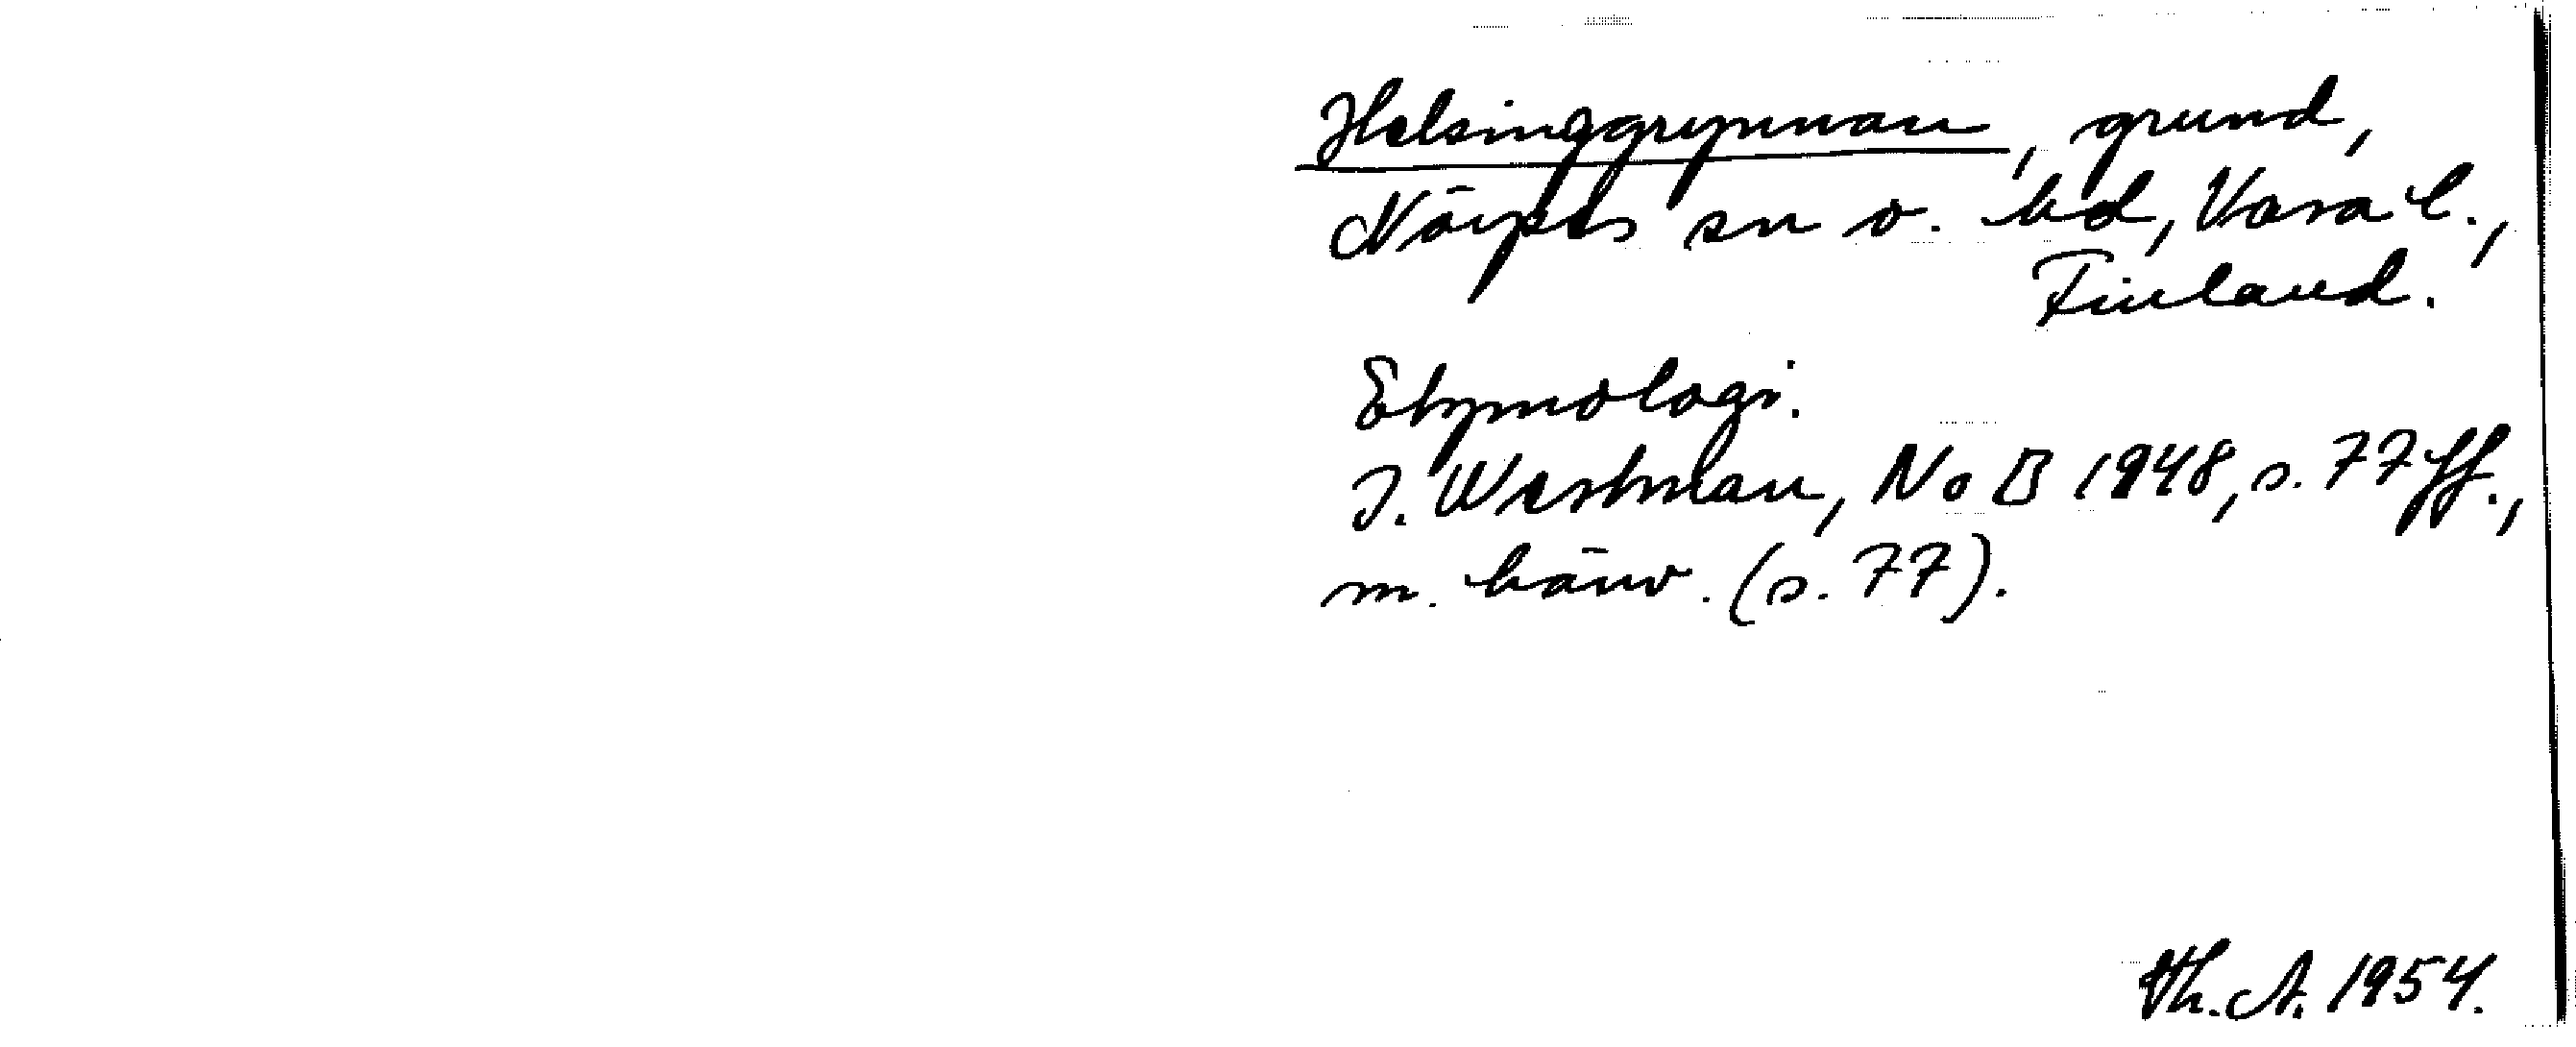 Helsinggrynnan, grund,
Närpes sn o. hd, Vasa l.,
Finland.
Etymologi.
I. Westman, NoB 1948, s. 77 ff.,
m. hänv. (s. 77).
Th. A. 1954.